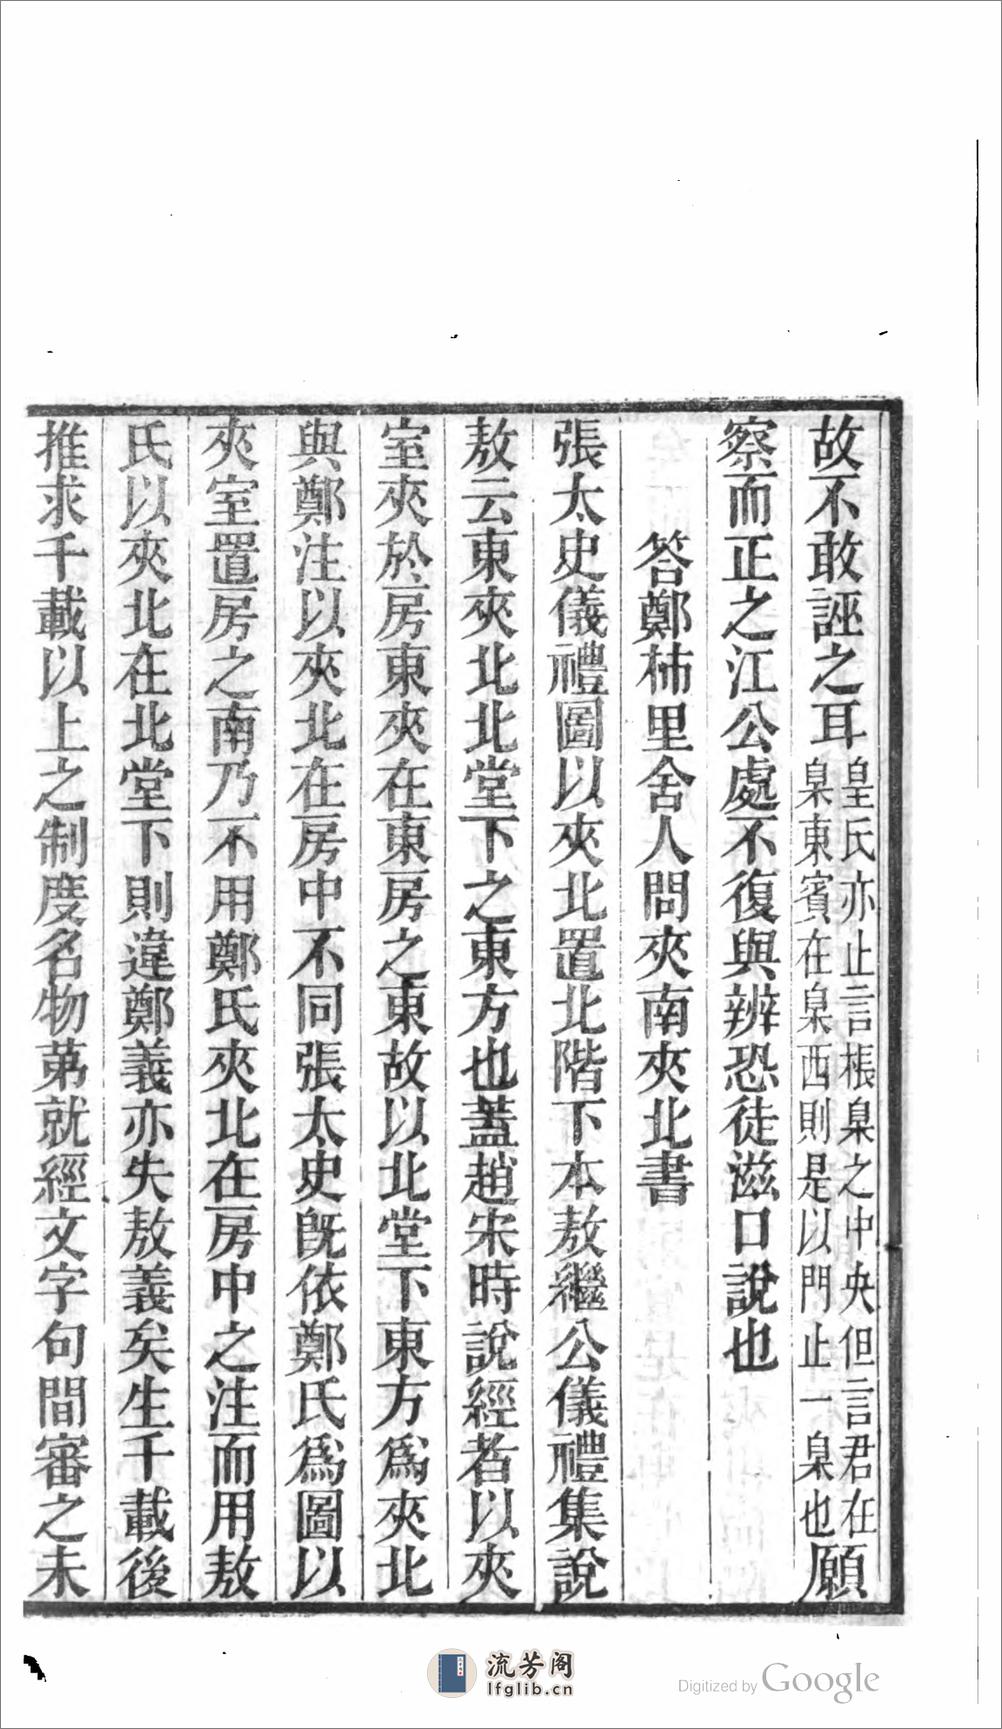 故不敢誣之耳皇氏亦止言棖臬之中央但言君在臬東賓在臬西則是以門止一臬也願
察而正之江公處不復與辨恐徒滋口說也
答鄭柿里舍人問夾南夾北書
張太史儀禮圖以夾北置北階下本敖繼公儀禮集說
敖云東夾北北堂下之東方也蓋趙宋時說經者以夾
室夾於房東夾在東房之東故以北堂下東方為夾北
與鄭注以夾北在房中不同張太史既依鄭氏為圖以
夾室置房之南乃不用鄭氏夾北在房中之注而用敖
氏以夾北在北堂下則違鄭義亦失敖義矣生千載後
推求千載以上之制度名物苐就經文字句間審之未
流芳阁
lfglib.cn
Digitized by Google